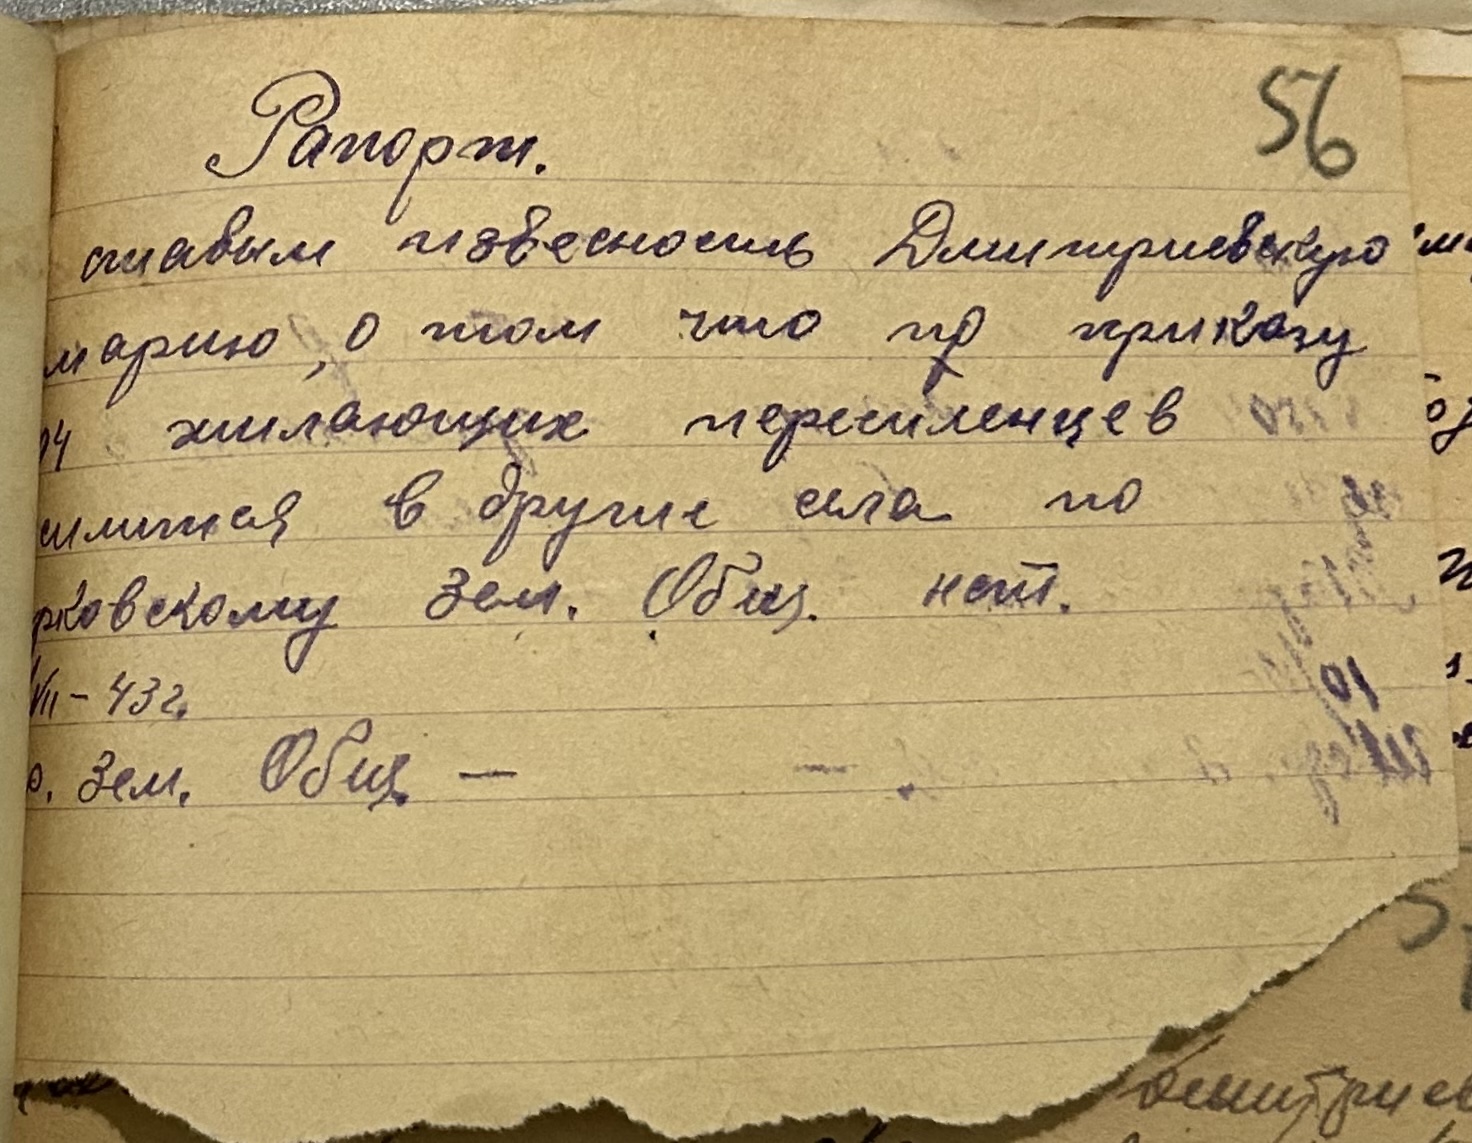 56
Рапорт.
ставым извесность Дмитриевскую
марию, о том что по приказу
04 жилающих пересиленцев
силится в другие села по
рковскому Зем. Общ. нет.
VII – 43 г.
о. Зем. Общ. —